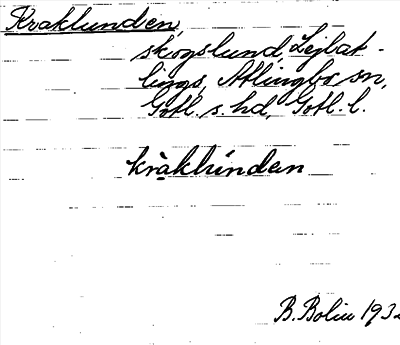 Kraklunden,
skogslund, Lejlat-
lings, Atlingbo sn,
Gotl. s. hd, Gotl. l.
kràklúndan
B. Bolin 1932